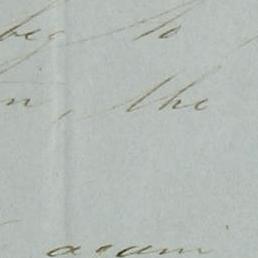 beg to
n, the
again